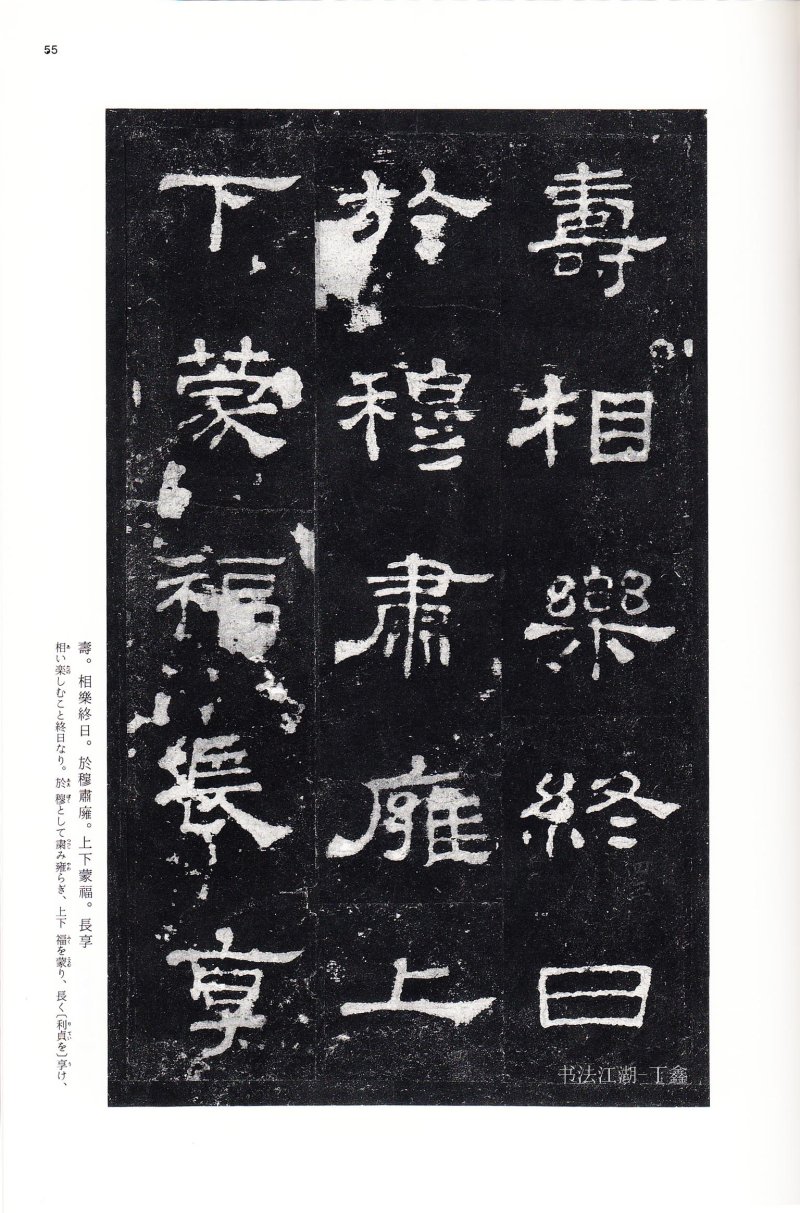 55
壽相樂終日
於穆肅廱上
下蒙福長享
书法江湖-丁鑫
壽。相樂終日。於穆肅廱。上下蒙福。長享
相い楽しむこと終日なり。於穆として粛み雍らぎ、上下 福を蒙り、長く〔利貞を〕享け、